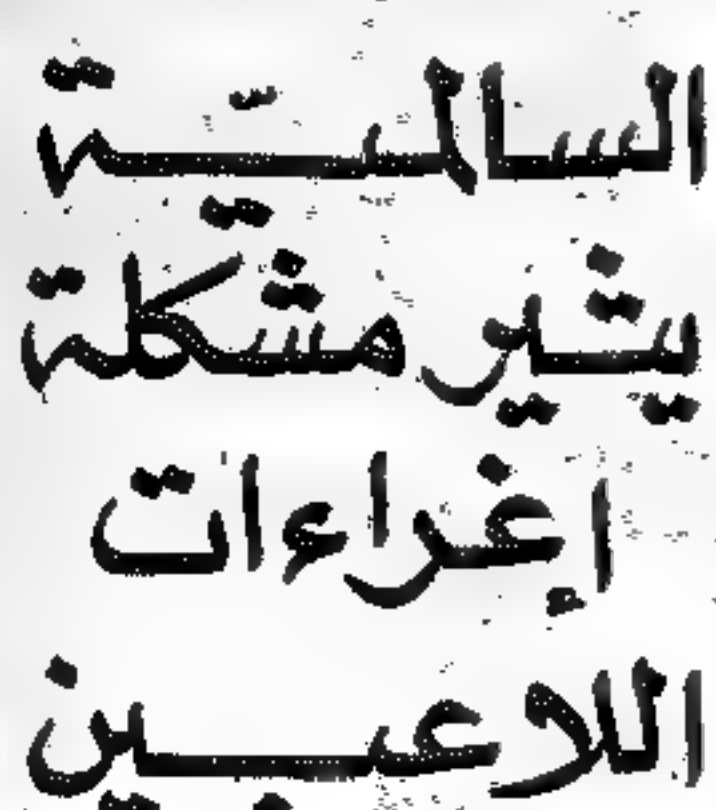 السالميّة
يثير مشكلة
إغراءات
اللاعبين